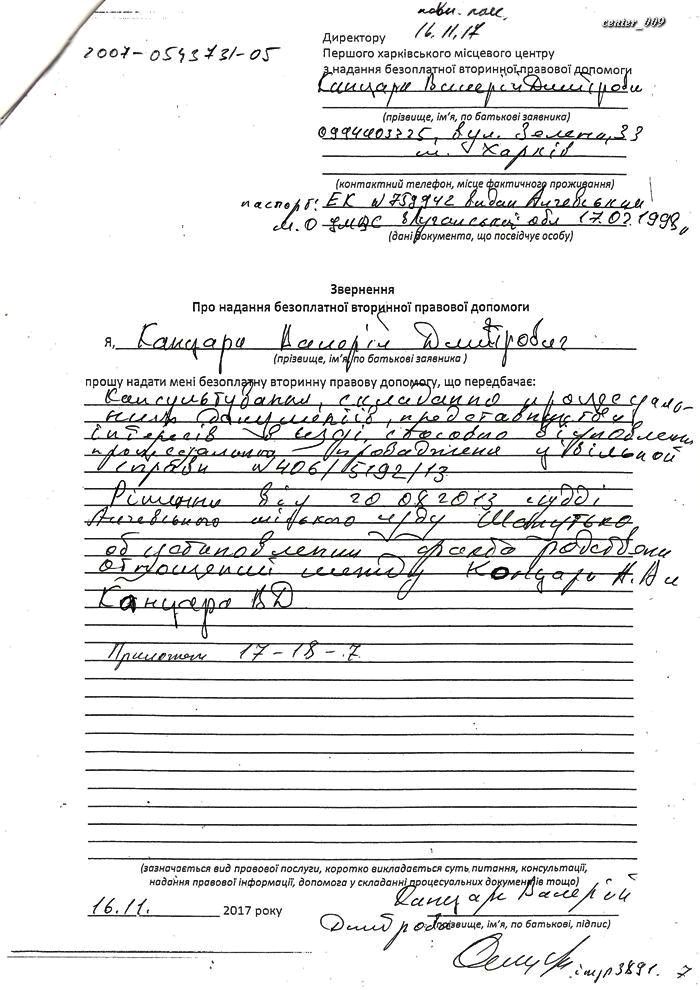 center_009
16.11.17
2007-0543731-05
Директору
Першого харківського місцевого центру
з надання безоплатної вторинної правової допомоги
Канцара Валерій Дмитрови
(прізвище, ім'я, по батькові заявника)
0994403725, вул. Зелена, 33
м. Харків
(контактний телефон, місце фактичного проживання)
паспорт: ЕК №759942 видан
М.О УМВС Луганської обл 17.02.1998
(дані документа, що посвідчує особу)
Звернення
Про надання безоплатної вторинної правової допомоги
Я, Канцара Валерій Дмитрович
(прізвище, ім'я, по батькові заявника )
прошу надати мені безоплатну вторинну правову допомогу, що передбачає:
Консультування, складання процесуаль-
них документів, представництва
інтересів в суді способно відновлення
провадження у цівільной
справи №406/5192/13
Рішення від 20 08 2013 судді
міського суду
об установлении факта родствени
отношений между Концарь Н.А и
Канцара ВД
17-18-7
(зазначається вид правової послуги, коротко викладається суть питання, консультації,
надання правової інформації, допомога у складанні процесуальних документів тощо)
16.11. 2017 року
Канцара Валерій
Дмитрови
(прізвище, ім'я, по батькові, підпис)
7